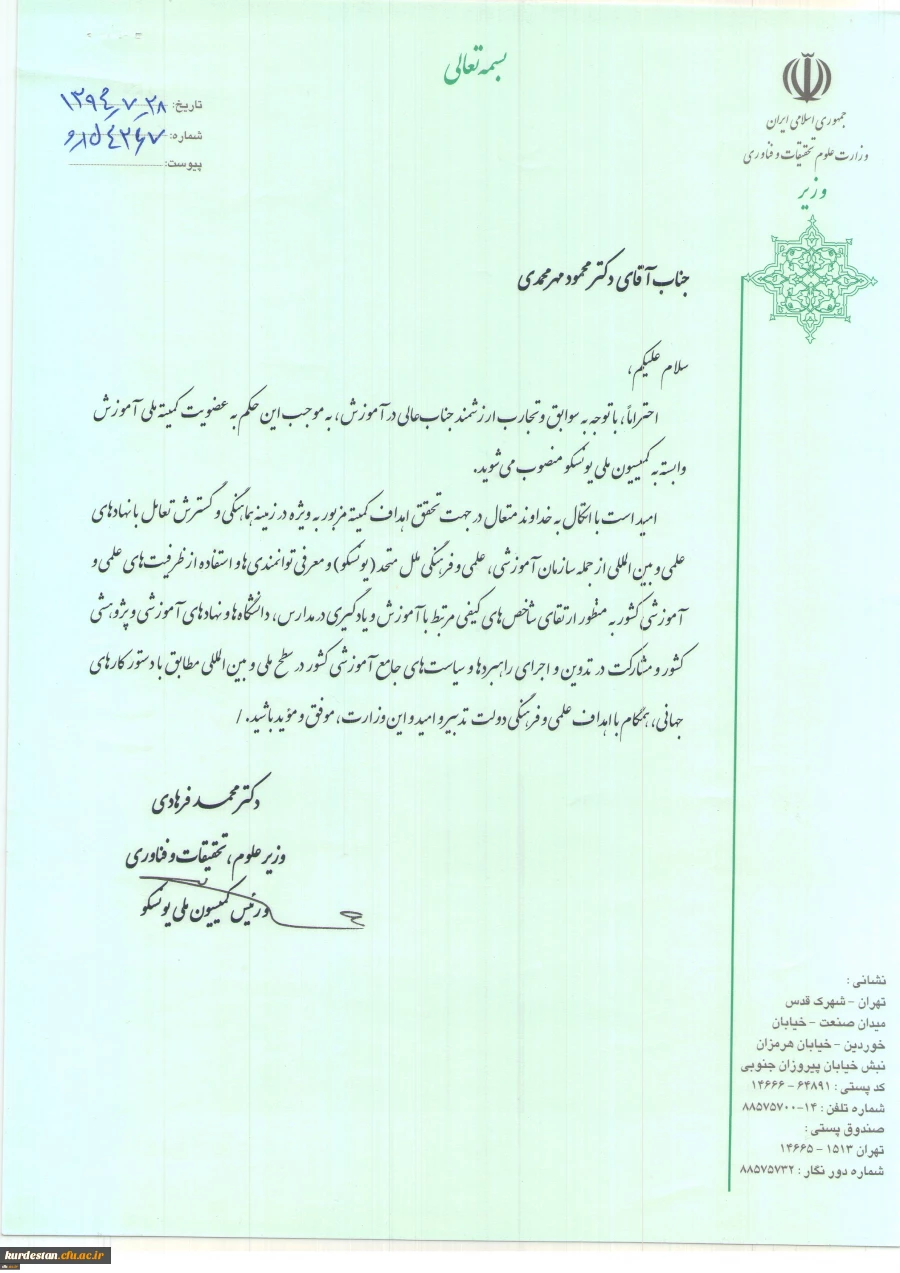 بسمه تعالی
جمهوری اسلامی ایران
وزارت علوم تحقیقات و فناوری
وزیر
تاریخ: ۱۳۹۴٫۷٫۲۸
شماره:
پیوست:
جناب آقای دکتر محمود مهرمحمدی
سلام علیکم،
احتراماً، با توجه به سوابق و تجارب ارزشمند جناب عالی در آموزش، به موجب این حکم به عضویت کمیته ملی آموزش
وابسته به کمیسیون ملی یونسکو منصوب می شوید.
امید است با اتکال به خداوند متعال در جهت تحقق اهداف کمیته مزبور به ویژه در زمینه هماهنگی و گسترش تعامل با نهادهای
علمی و بین المللی از جمله سازمان آموزشی، علمی و فرهنگی ملل متحد (یونسکو) و معرفی توانمندی ها و استفاده از ظرفیت های علمی و
آموزشی کشور به منظور ارتقای شاخص های کیفی مرتبط با آموزش و یادگیری در مدارس، دانشگاه ها و نهادهای آموزشی و پژوهشی
کشور و مشارکت در تدوین و اجرای راهبردها و سیاست های جامع آموزشی کشور در سطح ملی و بین المللی مطابق با دستور کارهای
جهانی، همگام با اهداف علمی و فرهنگی دولت تدبیر و امید و این وزارت، موفق و مؤید باشید. /
دکتر محمد فرهادی
وزیر علوم، تحقیقات و فناوری
و رئیس کمیسیون ملی یونسکو
نشانی :
تهران - شهرک قدس
میدان صنعت - خیابان
خوردین - خیابان هرمزان
نبش خیابان پیروزان جنوبی
کد پستی : ۶۴۸۹۱ - ۱۴۶۶۶
شماره تلفن : ۱۴-۸۸۵۷۵۷۰۰
صندوق پستی :
تهران ۱۵۱۳ - ۱۴۶۶۵
شماره دور نگار : ۸۸۵۷۵۷۳۲
kurdestan.cfu.ac.ir